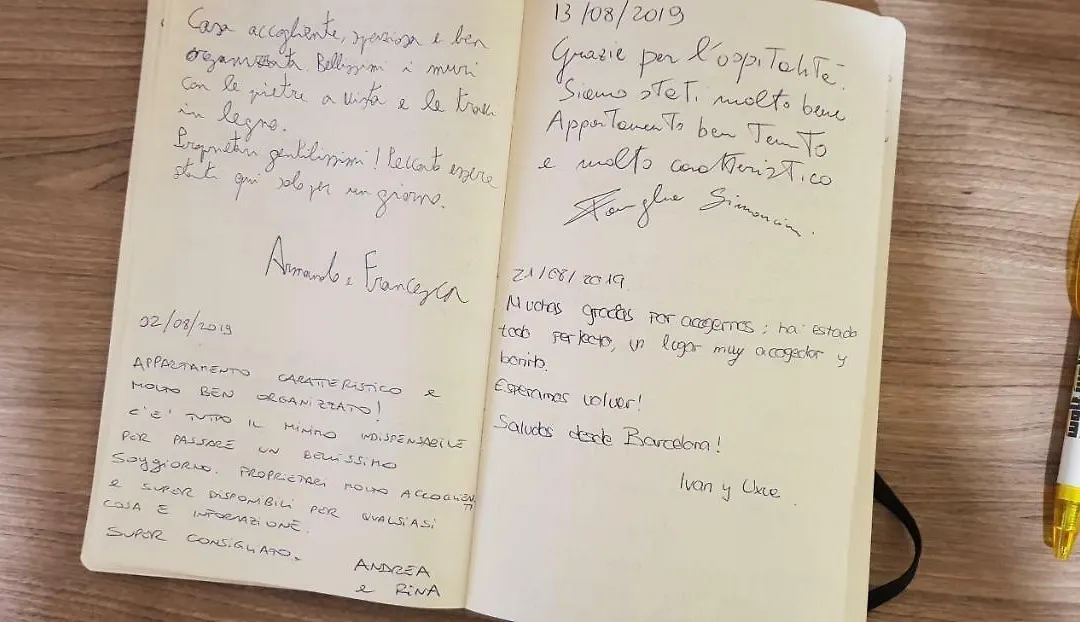 Casa accogliente, spaziosa e ben
organizzata. Bellissimi i muri
con le pietre a vista e le travi
in legno.
Proprietari gentilissimi! Peccato essere
stati qui solo per un giorno.
Armando e Francesca
02/08/2019
APPARTAMENTO CARATTERISTICO E
MOLTO BEN ORGANIZZATO!
C'E' TUTTO IL MINIMO INDISPENSABILE
PER PASSARE UN BELLISSIMO
SOGGIORNO. PROPRIETARI MOLTO ACCOGLIENTI
E SUPER DISPONIBILI PER QUALSIASI
COSA E INFORMAZIONE.
SUPER CONSIGLIATO.
ANDREA
e RINA
13/08/2019
Grazie per l'ospitalità.
Siamo stati molto bene
Appartamento ben tenuto
e molto caratteristico
Famiglia Simoncini.
21/08/2019
Muchas gracias por acogernos; ha estado
todo perfecto, un lugar muy acogedor y
bonito.
Esperamos volver!
Saludos desde Barcelona!
Ivan y